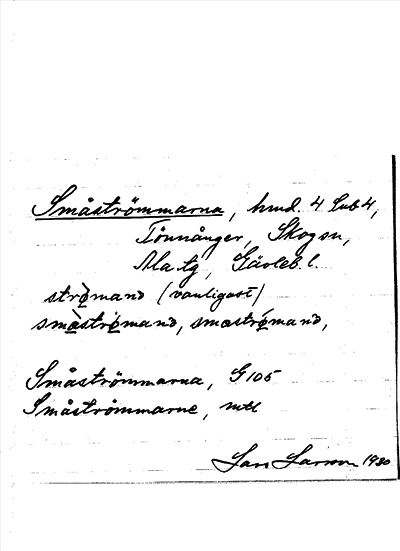 Småströmmarna, hmd. 4 Lub 4,
Tönnånger, Skog sn,
Ala tg, Gävleb. l.
strø̀mand (vanligast)
smæ̀strø̀mand, smæstrǿmand,
Småströmmarna, G 105
Småströmmarne, mtl
Lars Larsson 1930